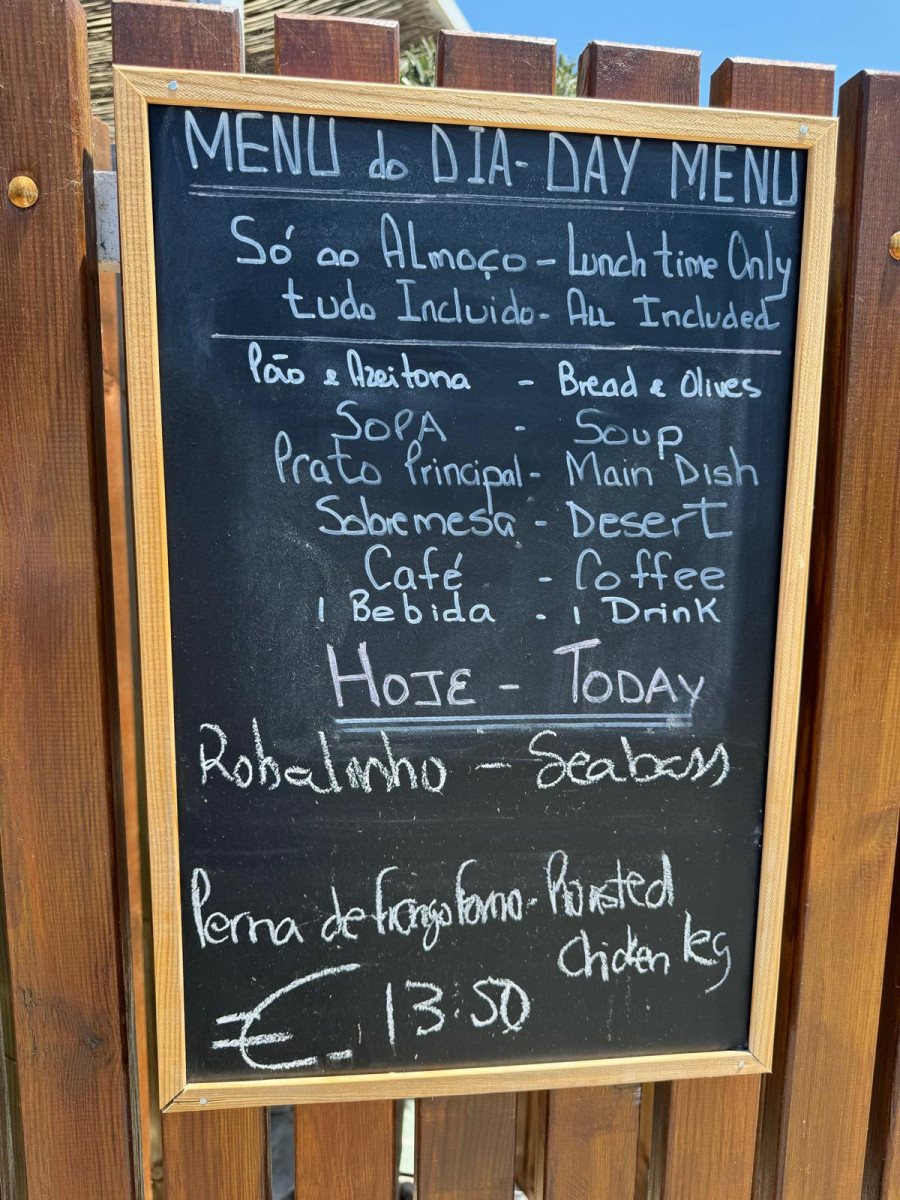 MENU do DIA - DAY MENU
Só ao Almoço - Lunch time Only
tudo Incluido - All Included
Pão e Azeitona - Bread e Olives
SOPA - Soup
Prato Principal - Main Dish
Sobremesa - Desert
Café - Coffee
1 Bebida - 1 Drink
HOJE - TODAY
Robalinho - Seabass
Perna de frango forno - Roasted
chicken leg
€ 13.50